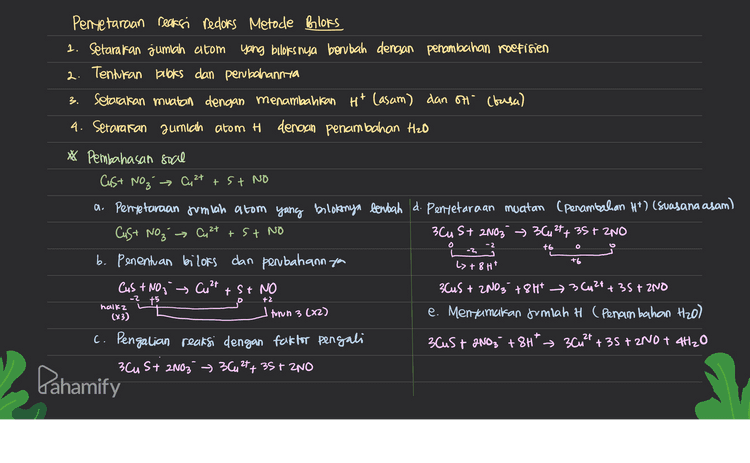 Penyetaraan reaksi redoks Metode Biloks
1. Setarakan jumlah atom yang biloksnya berubah dengan penambahan koefisien
2. Tentukan biloks dan perubahannya
3. Setarakan muatan dengan menambahkan H⁺ (asam) dan OH⁻ (basa)
4. Setarakan jumlah atom H dengan penambahan H₂O
* Pembahasan soal
CuS + NO₃⁻ → Cu²⁺ + S + NO
a. Penyetaraan jumlah atom yang biloksnya berubah
CuS + NO₃⁻ → Cu²⁺ + S + NO
b. Penentuan biloks dan perubahannya
CuS + NO₃⁻ → Cu²⁺ + S + NO
-2 +5 0 +2
naik 2 (x3)
turun 3 (x2)
c. Pengalian reaksi dengan faktor pengali
3CuS + 2NO₃⁻ → 3Cu²⁺ + 3S + 2NO
d. Penyetaraan muatan (penambahan H⁺) (suasana asam)
3CuS + 2NO₃⁻ → 3Cu²⁺ + 3S + 2NO
0 -2 +6 0 0
-2 +6
↳ + 8H⁺
3CuS + 2NO₃⁻ + 8H⁺ → 3Cu²⁺ + 3S + 2NO
e. Menyamakan jumlah H (penambahan H₂O)
3CuS + 2NO₃⁻ + 8H⁺ → 3Cu²⁺ + 3S + 2NO + 4H₂O
Pahamify